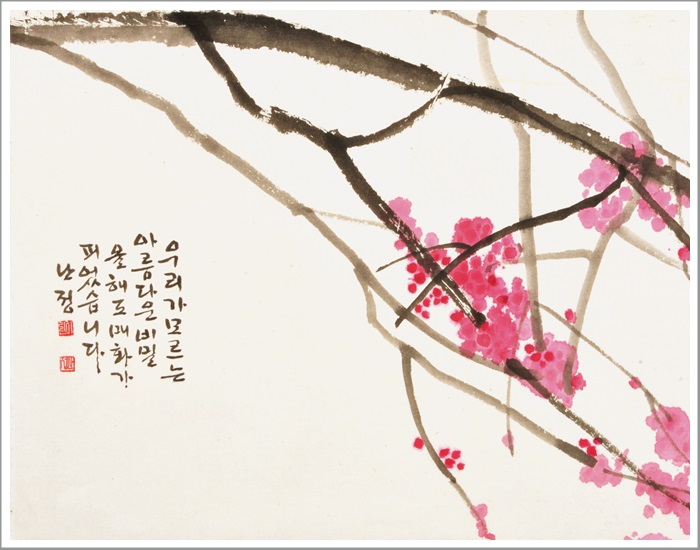 우리가 모르는
아름다운 비밀
올해도 매화가
피었습니다
난정